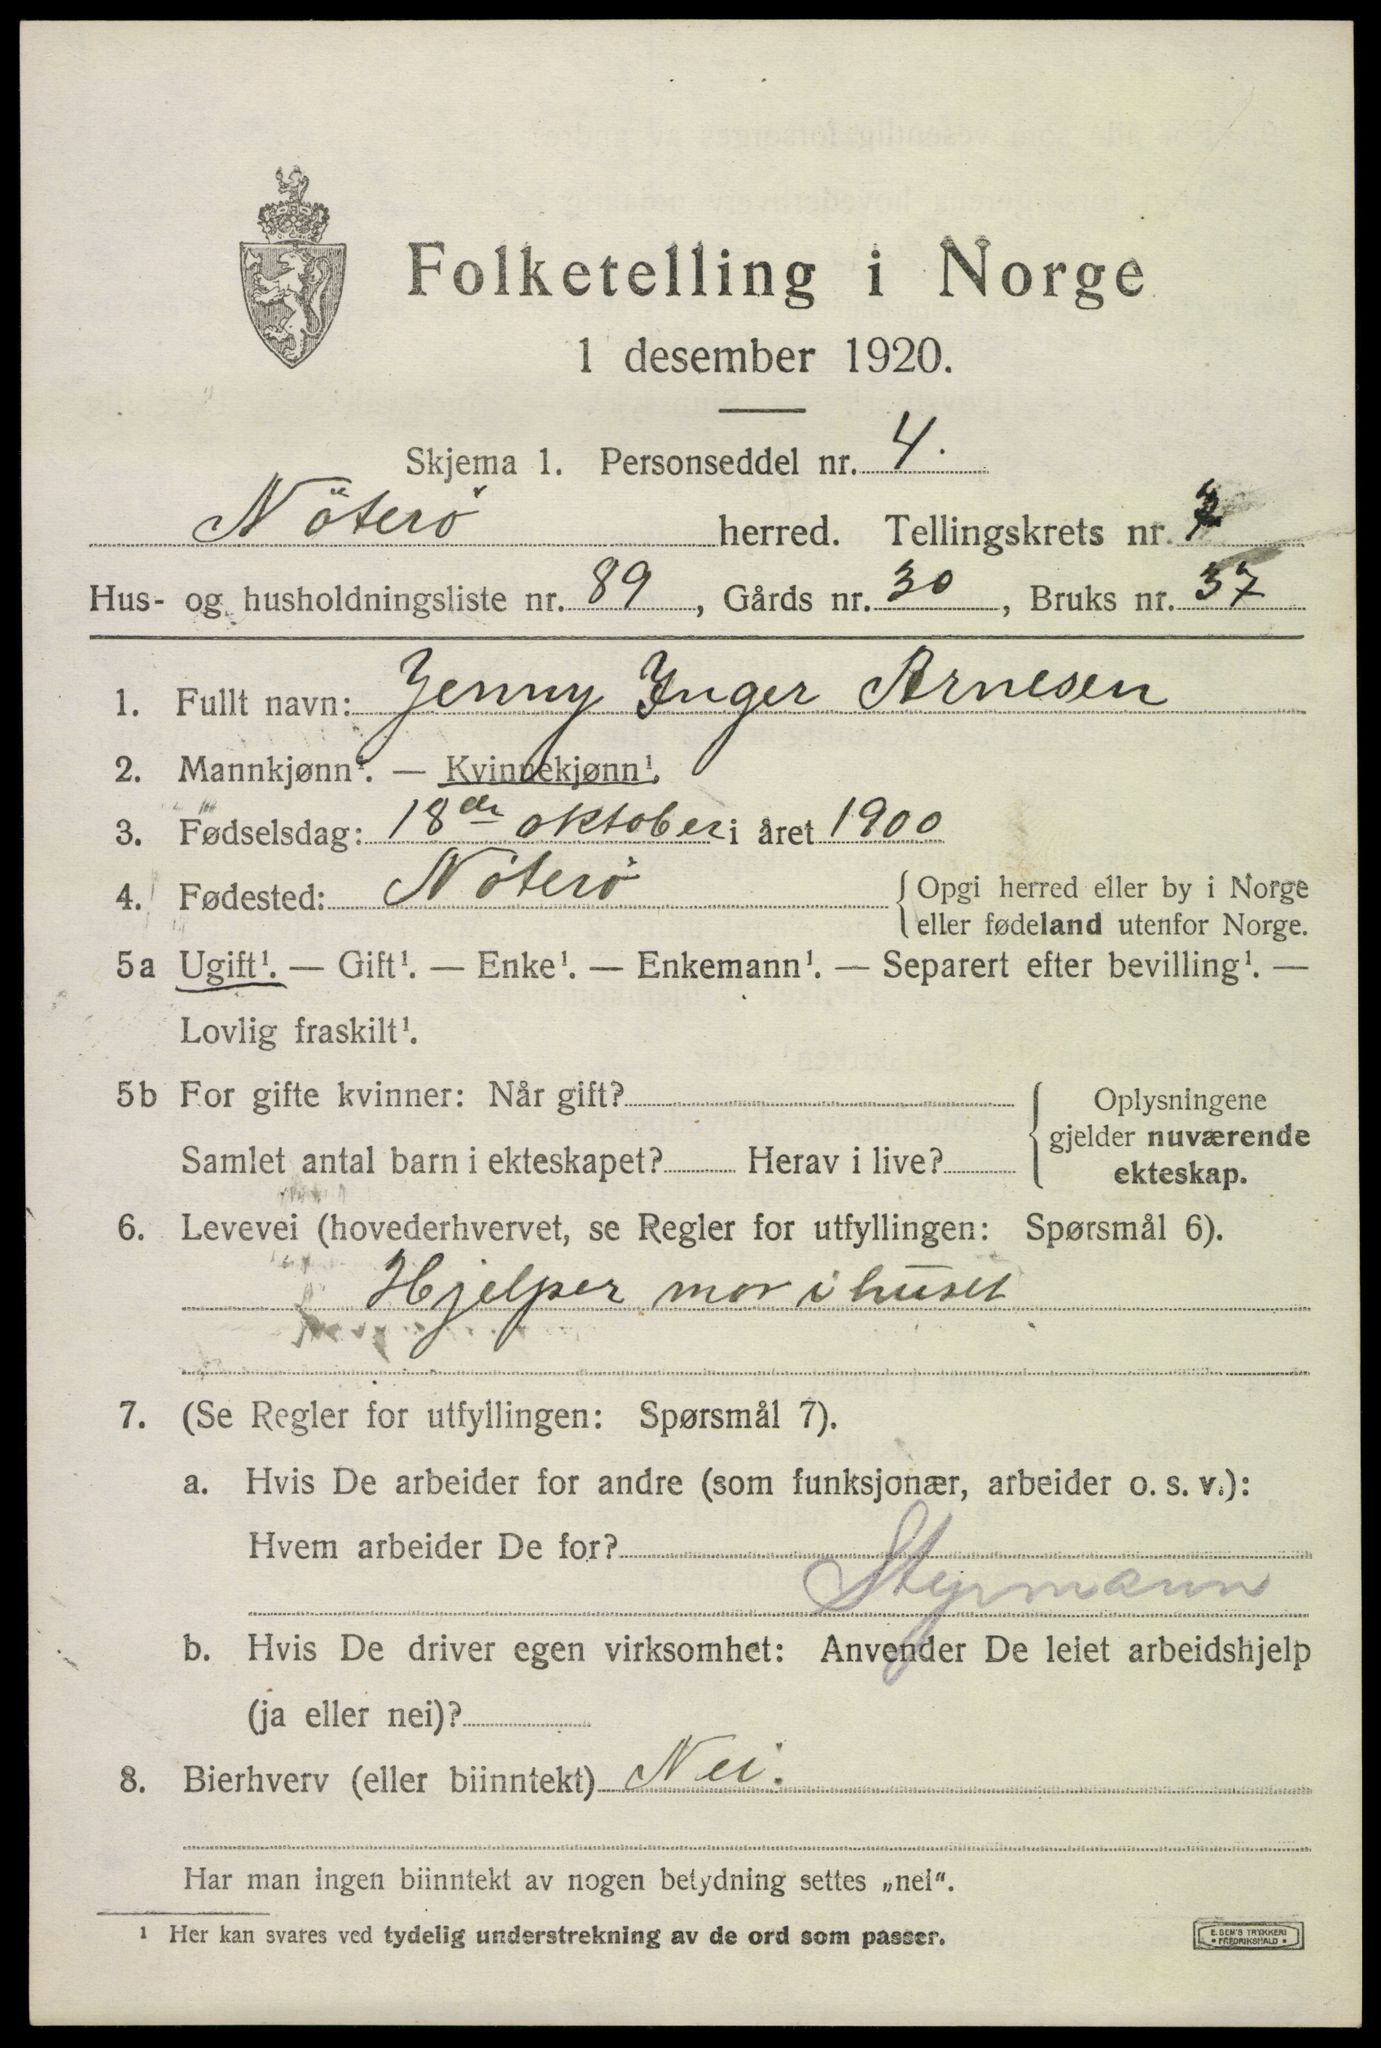 Folketelling i Norge
1 desember 1920.
Skjema 1. Personseddel nr. 4.
Nöterö herred. Tellingskrets nr.
Hus- og husholdningsliste nr. 89, Gårds nr. 30, Bruks nr. 37
1. Fullt navn: Jenny Inger Arnesen
2. Mannkjønn¹. — Kvinnekjønn¹.
3. Fødselsdag: 18de oktober i året 1900
4. Fødested: Nöterö { Opgi herred eller by i Norge
eller fødeland utenfor Norge.
5a Ugift¹. — Gift¹. — Enke¹. — Enkemann¹. — Separert efter bevilling¹. —
Lovlig fraskilt¹.
5b For gifte kvinner: Når gift? { Oplysningene
gjelder nuværende
Samlet antal barn i ekteskapet? Herav i live? ekteskap.
6. Levevei (hovederhvervet, se Regler for utfyllingen: Spørsmål 6).
Hjelper mor i huset
7. (Se Regler for utfyllingen: Spørsmål 7).
a. Hvis De arbeider for andre (som funksjonær, arbeider o. s. v.):
Hvem arbeider De for?
Styrmann
b. Hvis De driver egen virksomhet: Anvender De leiet arbeidshjelp
(ja eller nei)?
8. Bierhverv (eller biinntekt) Nei.
Har man ingen biinntekt av nogen betydning settes „nei“.
¹ Her kan svares ved tydelig understrekning av de ord som passer.
E. SEM'S TRYKKERI
• FREDRIKSHALD •